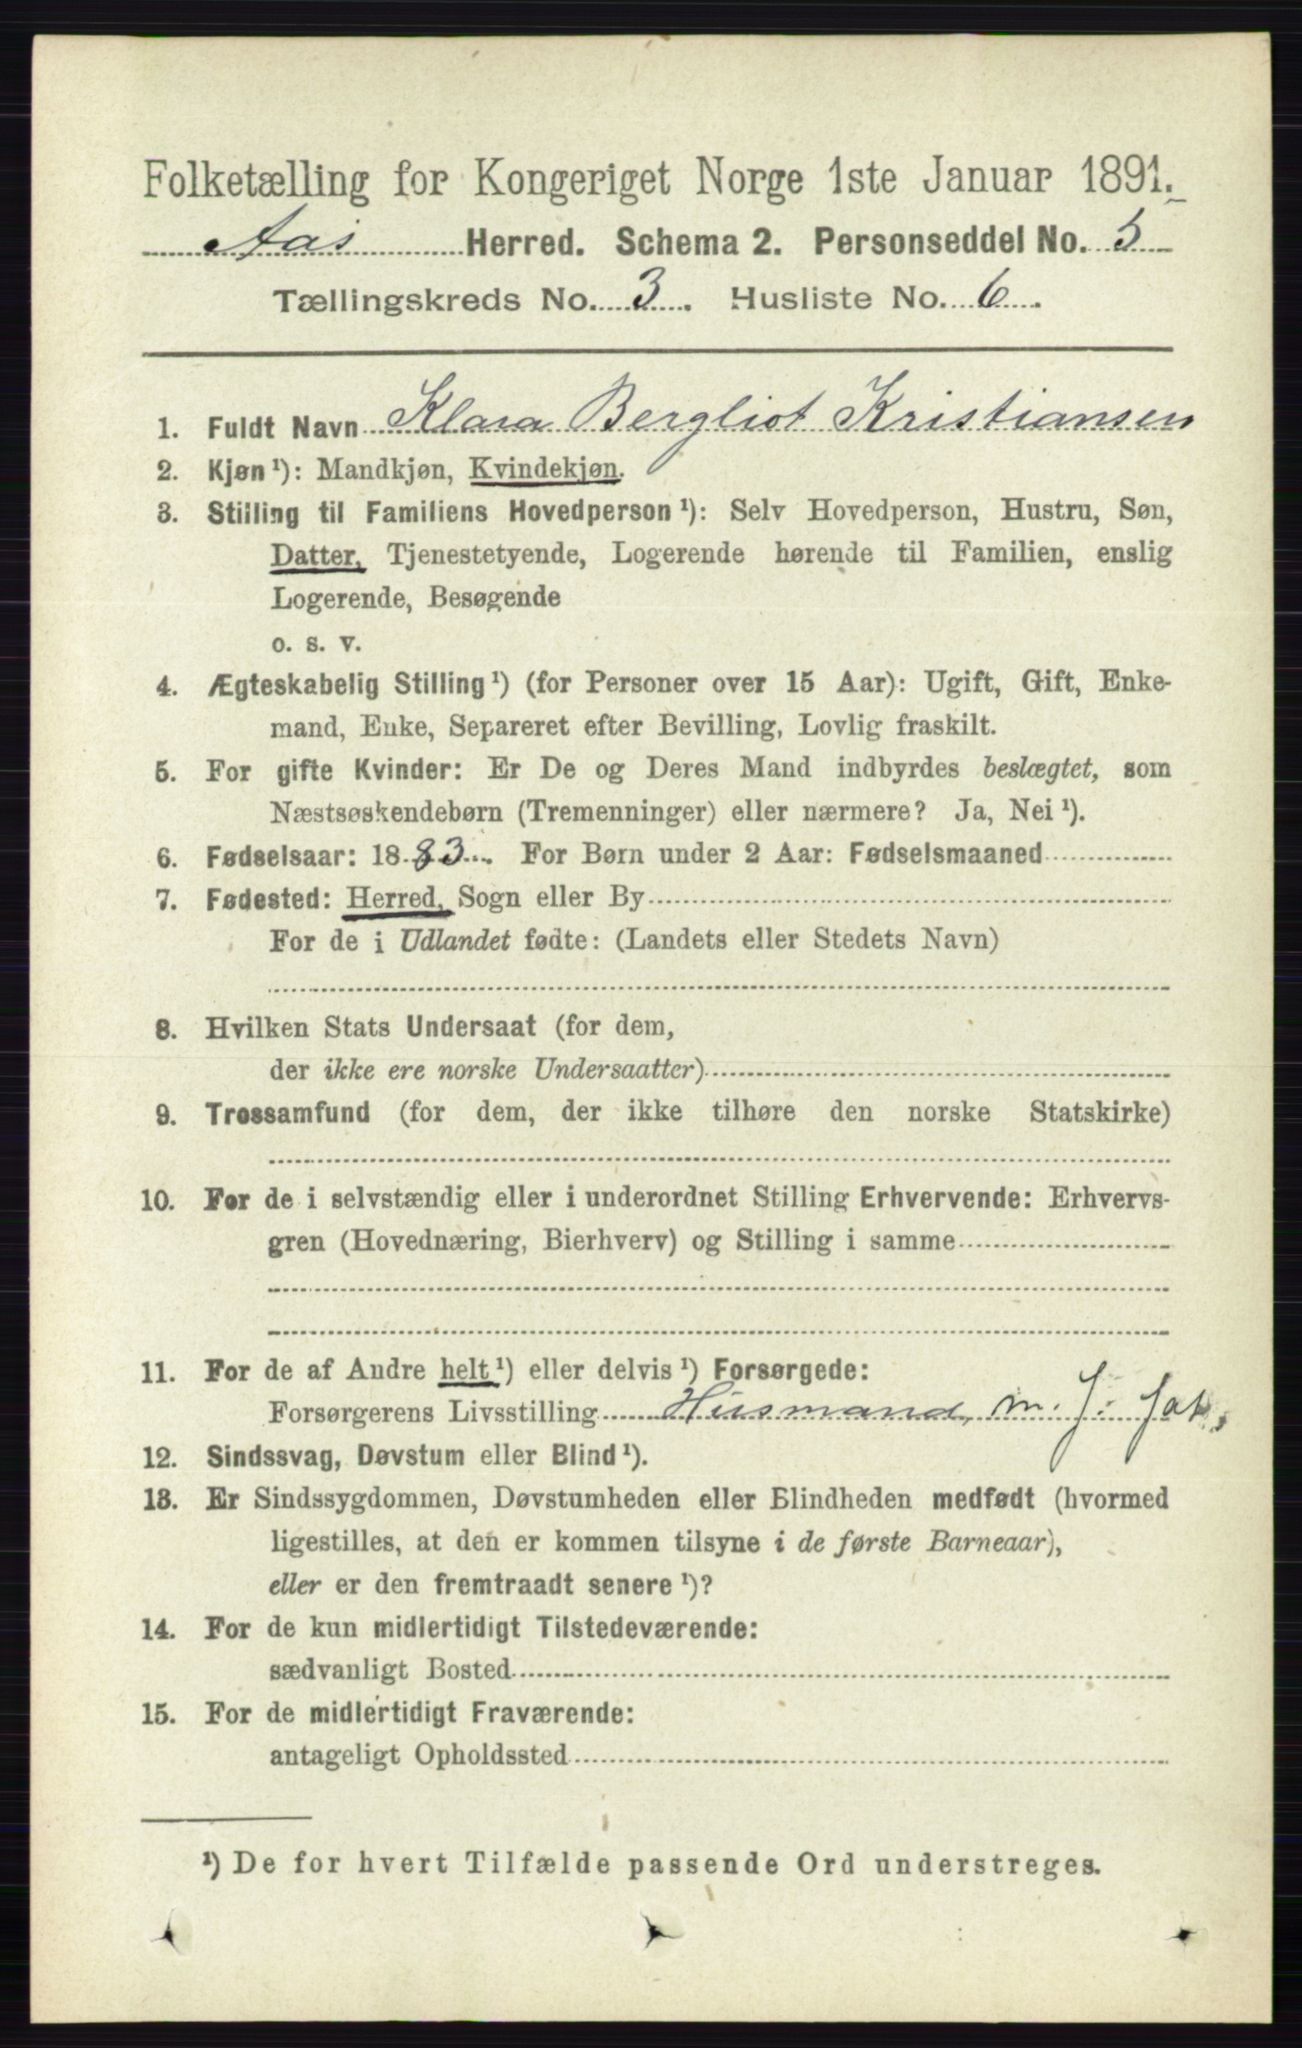 Folketælling for Kongeriget Norge 1ste Januar 1891.
Aas Herred. Schema 2. Personseddel No. 5
Tællingskreds No. 3. Husliste No. 6.
1. Fuldt Navn Klara Bergliot Kristiansen
2. Kjøn¹): Mandkjøn, Kvindekjøn.
3. Stilling til Familiens Hovedperson¹): Selv Hovedperson, Hustru, Søn,
Datter, Tjenestetyende, Logerende hørende til Familien, enslig
Logerende, Besøgende
o. s. v.
4. Ægteskabelig Stilling¹) (for Personer over 15 Aar): Ugift, Gift, Enke-
mand, Enke, Separeret efter Bevilling, Lovlig fraskilt.
5. For gifte Kvinder: Er De og Deres Mand indbyrdes beslægtet, som
Næstsøskendebørn (Tremenninger) eller nærmere? Ja, Nei¹).
6. Fødselsaar: 1883. For Børn under 2 Aar: Fødselsmaaned
7. Fødested: Herred, Sogn eller By
For de i Udlandet fødte: (Landets eller Stedets Navn)
8. Hvilken Stats Undersaat (for dem,
der ikke ere norske Undersaatter)
9. Trossamfund (for dem, der ikke tilhøre den norske Statskirke)
10. For de i selvstændig eller i underordnet Stilling Erhvervende: Erhvervs-
gren (Hovednæring, Bierhverv) og Stilling i samme
11. For de af Andre helt¹) eller delvis¹) Forsørgede:
Forsørgerens Livsstilling Husmand m. J.
12. Sindssvag, Døvstum eller Blind¹).
13. Er Sindssygdommen, Døvstumheden eller Blindheden medfødt (hvormed
ligestilles, at den er kommen tilsyne i de første Barneaar),
eller er den fremtraadt senere¹)?
14. For de kun midlertidigt Tilstedeværende:
sædvanligt Bosted
15. For de midlertidigt Fraværende:
antageligt Opholdssted
¹) De for hvert Tilfælde passende Ord understreges.